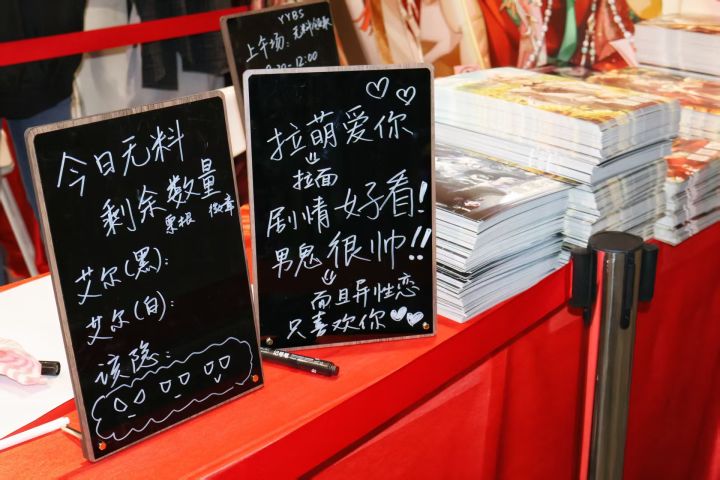 今日无料
剩余数量
票根 徽章
艾尔(黑):
艾尔(白):
该隐:
YYBS
上午场:无料领取
拉萌爱你
拉面
剧情好看!
男鬼很帅!!
而且异性恋
只喜欢你